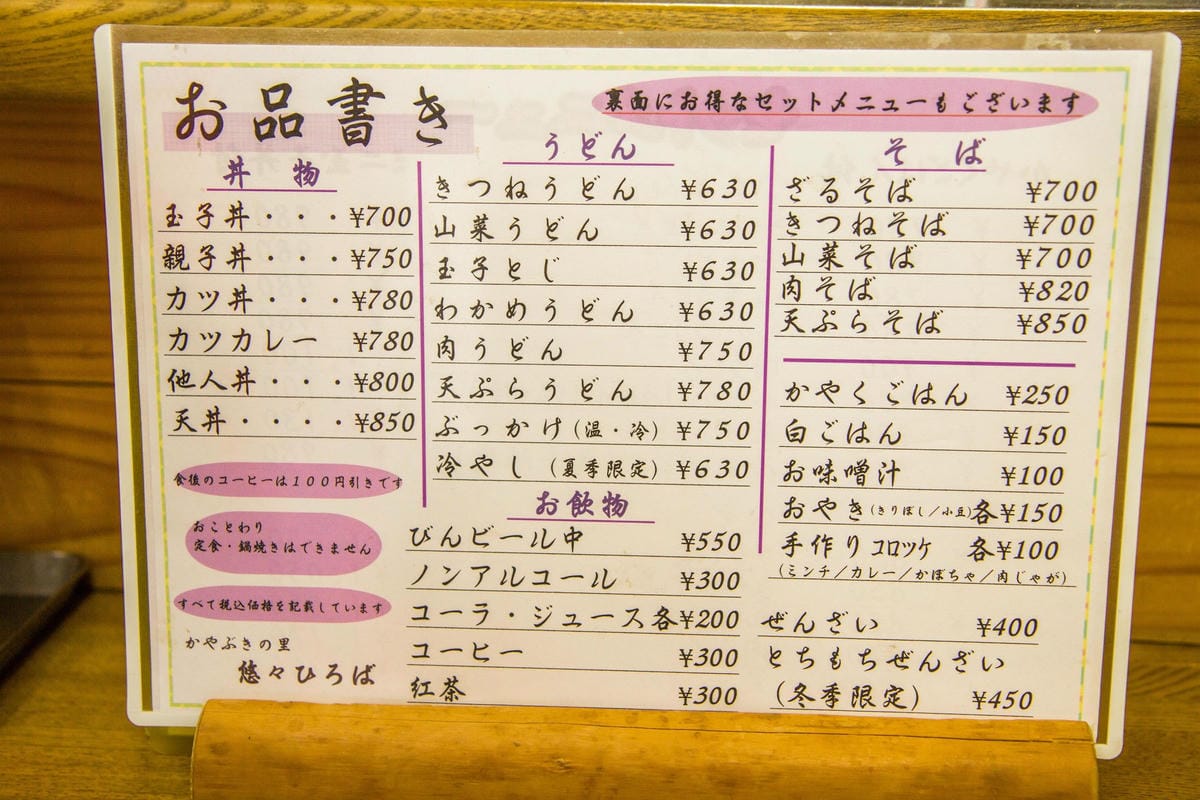 お品書き
裏面にお得なセットメニューもございます
丼 物
玉子丼・・・¥700
親子丼・・・¥750
カツ丼・・・¥780
カツカレー ¥780
他人丼・・・¥800
天丼・・・・¥850
食後のコーヒーは100円引きです
おことわり
定食・鍋焼きはできません
すべて税込価格を記載しています
かやぶきの里
悠々ひろば
うどん
きつねうどん ¥630
山菜うどん ¥630
玉子とじ ¥630
わかめうどん ¥630
肉うどん ¥750
天ぷらうどん ¥780
ぶっかけ(温・冷) ¥750
冷やし (夏季限定) ¥630
お飲物
びんビール中 ¥550
ノンアルコール ¥300
コーラ・ジュース各¥200
コーヒー ¥300
紅茶 ¥300
そ ば
ざるそば ¥700
きつねそば ¥700
山菜そば ¥700
肉そば ¥820
天ぷらそば ¥850
かやくごはん ¥250
白ごはん ¥150
お味噌汁 ¥100
おやき(きりぼし/小豆)各¥150
手作りコロッケ 各¥100
(ミンチ/カレー/かぼちゃ/肉じゃが)
ぜんざい ¥400
とちもちぜんざい
(冬季限定) ¥450